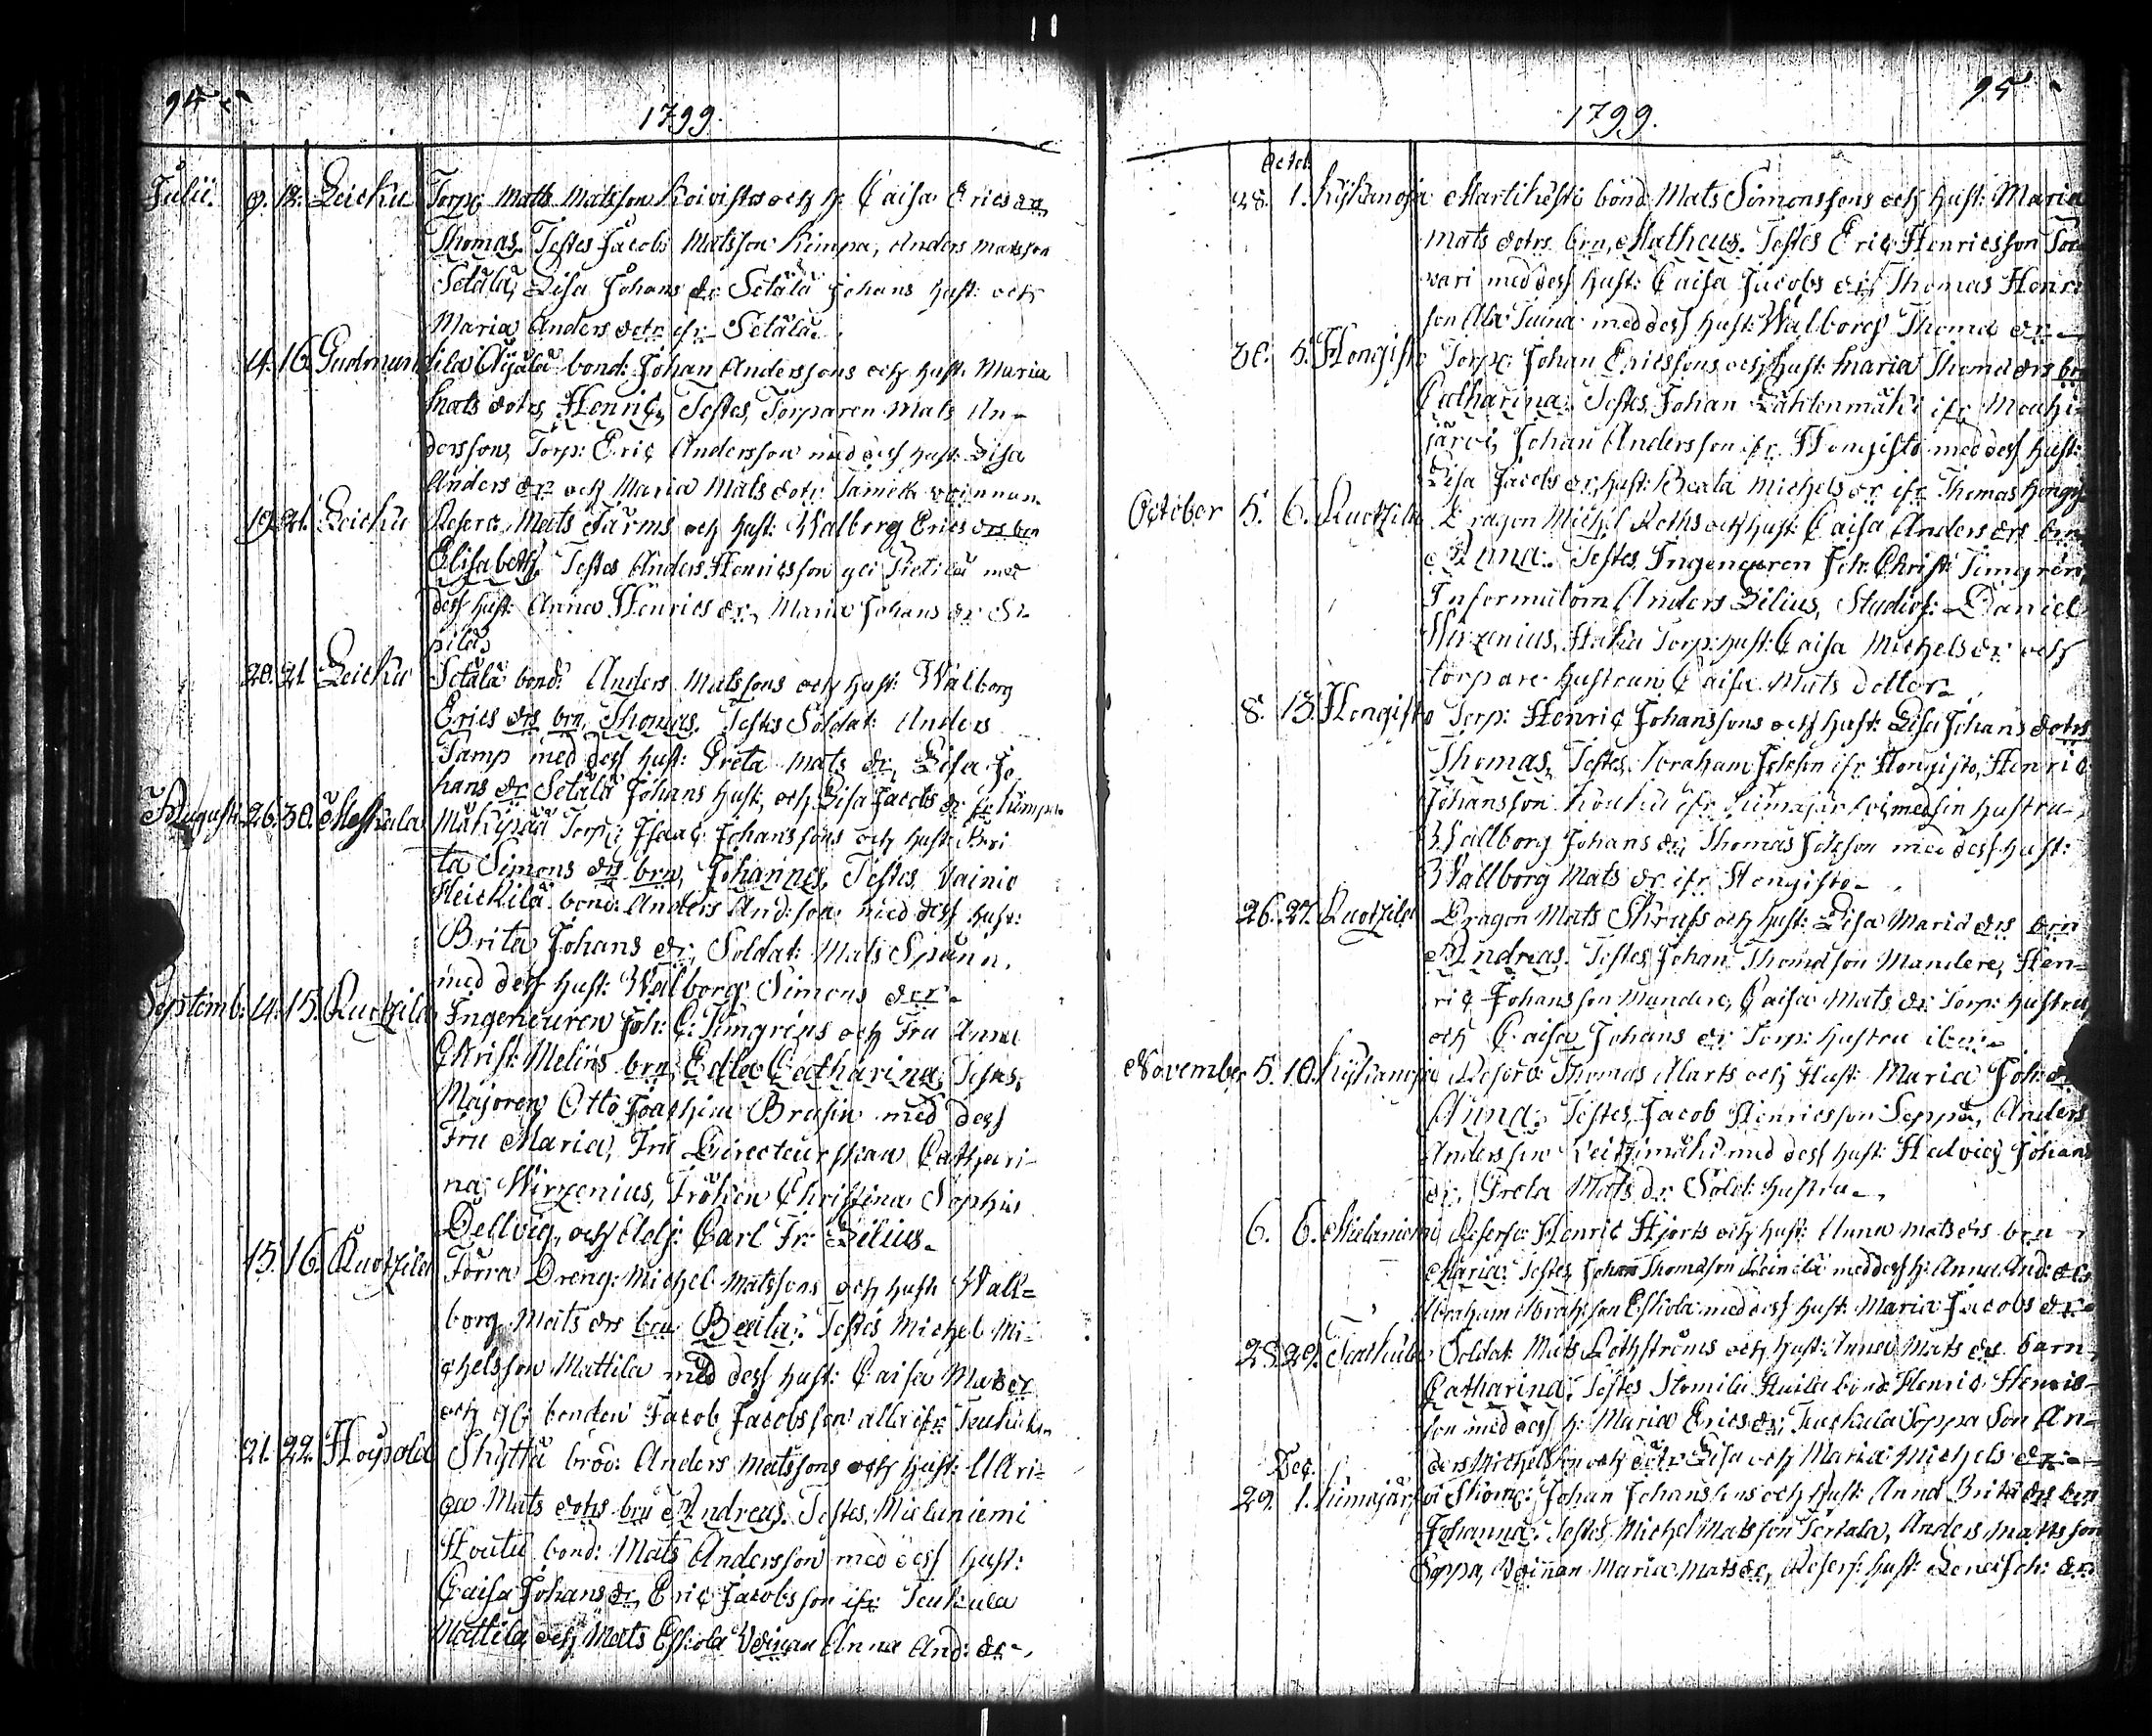 94
1799.
Julii. 9. 12. Leicku Torp: Mats Matsson Koivistos och h: Caisa Erics dr,
Thomas. Testes Jacob Matsson Kimpa, Anders Matsson
Setälä, Lisa Johans dr Setälä Johans hust: och
Maria Anders dotr ifr. Setälä.
14. 16. Gudmundila Äijälä bond: Johan Anderssons och hust: Maria
Mats dotrs, Henric, Testes, Torparen Mats An-
dersson, Torp: Eric Andersson med dess hust: Lisa
Anders dr och Maria Mats dotr
19. 21. Leicku Reserv. Mats Järms och hust: Walborg Erics drs brn
Elisabeth. Testes Anders Henricsson Pietilä med
dess hust: Anna Henrics dr, Maria Johans dr Si-
pilä,
20. 21. Leicku Setälä bond: Anders Matssons och hust: Walborg
Erics drs brn, Thomas. Testes Soldat: Anders
Tamp med dess hust: Greta Mats dr, Lisa Jo
hans dr Setälä Johans hust, och Lisa Jacobs dr ifr Kimpa
Augusti 26. 30. Meskala Mäkipää Torp: Isaac Johanssons och hust: Bri
ta Simons drs brn, Johannes, Testes, Vainio
Heickilä bond: Anders And:son med dess hust:
Brita Johans dr, Soldat: Mats Spann,
med dess hust: Walborg Simons dr.
Septemb: 14. 15. Ruotzila Ingenieuren Joh: C: Timgréns och Fru Anna
Christ: Melins brn, Edla Catharina, Testes,
Majoren Otto Joachim Brusin med dess
Fru Maria, Fru Directeurskan Cathari-
na Wirzenius, Fröken Christina Sophia
Dellvig, och Adj: Carl Fr: Lilius.
15. 16. Ruotzila Förra Dreng: Michel Matssons och hust: Wall-
borg Mats drs brn Beata. Testes Michel Mi-
chelsson Mattila med dess hust: Caisa Mats dr
och bonden Jacob Jacobsson alla ifr Teukula
21. 22. Hoijpola Skyttä bröd: Anders Matssons och hust: Mari-
ca Mats dotrs brn Andreas. Testes, Mielaniemi
Houtu bond: Mats Andersson med dess hust:
Caisa Johans dr, Eric Jacobsson ifr Teukula
Mattila och Mats Eskola Weinan Anna And: dr.
95
1799.
Octob.
28. 1. Kijkanoja Martikesti bond Mats Simonssons och hust: Maria
Mats dotrs brn, Matheus. Testes Eric Henricsson Tor
vari med dess hust: Caisa Jacobs dr, Thomas Henric
son Ala Tuina med dess hust: Walborg Thomæ dr
30. 5. Hongisto Torp: Johan Ericssons och hust: Maria Thomæ drs brn
Catharina. Testes, Johan Lähtenmäki ifr Mouhi-
järvi, Johan Andersson ifr Hongisto med dess hust:
Lisa Jacobs dr, hust: Beata Michels dr ifr Thomas Hongis
October 5. 6. Ruotzila Dragon Michel Roths och hust: Caisa Anders drs brn
Anna. Testes, Ingenieuren Joh: Christ: Timgren,
Informatorn Anders Lilius, Studios: Daniel
Wirzenius, Haka Torp: hust: Caisa Michels dr och
torpare hustrun Caisa Mats dotter.
8. 13. Hongisto Torp: Henric Johanssons och hust: Lisa Johans dotrs
Thomas, Testes, Abraham Johsson ifr Hongisto, Henric
Johansson Kouku ifr Kimajärfvi med sin hustru
Wallborg Johans dr, Thomas Johsson med dess hust:
Wallborg Mats dr ifr Hongisto.
26. 27. Ruotzila Dragon Mats Skrufs och hust: Lisa Maria drs brn
Andreas. Testes, Johan Thomæson Mandere, Hen-
ric Johansson Mandere, Caisa Mats dr Torp: hustru
och Caisa Johans dr Torp: hustru
November 5. 10. Kijkanoja Reserv: Thomas Marts och Hust: Maria Joh: d
Anna. Testes, Jacob Henricsson Seppä, Anders
Andersson Leitzimäki med dess hust: Hedvig Johans
dr, Greta Mats dr Sold: hustru.
6. 6. Mielaniemi Reserv: Henric Hjorts och hust: Anna Mats drs brn
Maria. Testes, Johan Thomæson Heinilä med dess h: Anna And: dr,
Abraham Abrah:son Eskola med dess hust: Maria Jacobs dr
28. 29. Teukula Soldat: Mats Rothströms och hust: Anna Mats drs barn,
Catharina. Testes Stomila Huila bond Henric Henric-
son med dess h: Maria Erics dr, Teukula Soppa Son An-
ders Michelsson och dotr Lisa och Maria Michels dr
Dec.
29. 1. Kimajärfvi Skom: Johan Johanssons och hust: Anna Brita drs brn
Johanna. Testes, Michel Matsson Tertala, Anders Mattsson
Soppa, Weinan Maria Mats dr, Reserf: hust: Lena Joh: dr